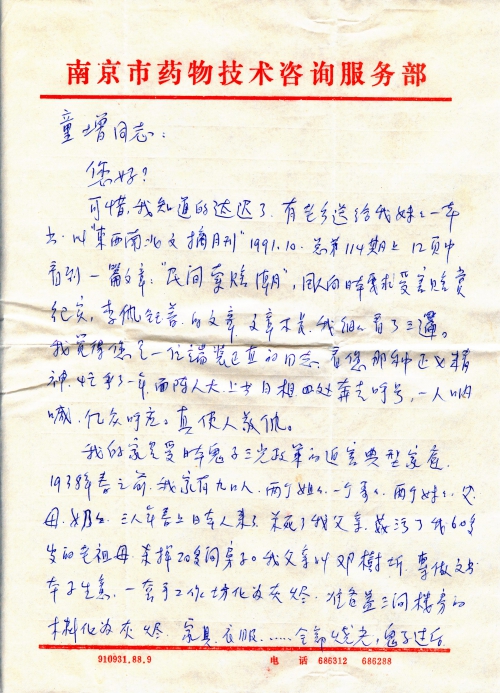 南京市药物技术咨询服务部
童增同志:
您好?
可惜,我知道的太迟了.有老乡送给我妹妹一本
书.叫"东西南北文摘月刊"1991.10.总第114期上12页中
看到一篇文章:"民间索赔潮",国人向日本要求受害赔赏
纪实,李佩钰著.的文章 文章不长,我细细看了三遍。
我觉得您是一位端装正真的同志 看您那种正义精
神,忙了一年,面陈人大,上书日相四处奔走呼号,一人呐
喊.亿众呼应。真使人敬佩。
我的家是受日本鬼子三光政策的迫害典型家庭.
1938年春之前,我家有九口人.两个姐姐.一个哥哥.两个妹妹.父
母.奶奶.三八年春上日本人来了杀死了我父亲,蔑污了我60多
岁的老祖母.烧掉20多间房子。我父亲叫邓樹圻,专做文书
本子生意,一套手工作坊化为灰烬.准备盖三间楼房的
木料化为灰烬.家具.衣服......全部烧光,鬼子过后
910931.88.9 电 话 686312 686288